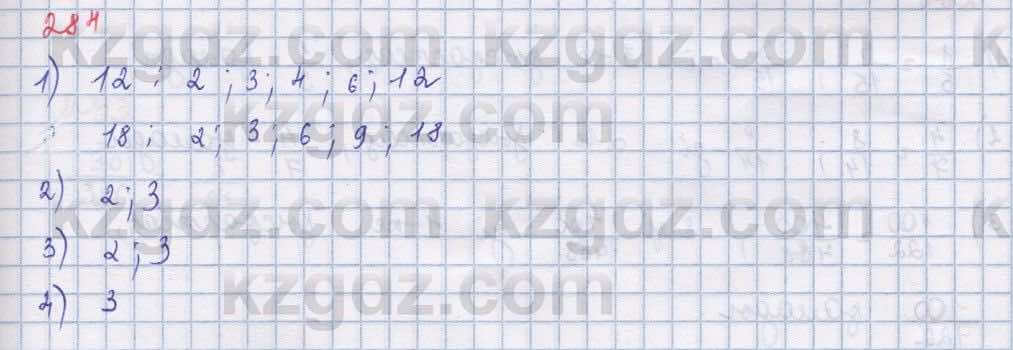 284
kzgdz.com kzgdz.com k
1) 12 : 2 ; 3 ; 4 ; 6 ; 12
kzgdz.com kzgdz.com
18 ; 2 ; 3 ; 6 ; 9 ; 18
2) 2 ; 3
kzgdz.com kzgdz.com k
3) 2 ; 3
kzgdz.com kzgdz.com
4) 3